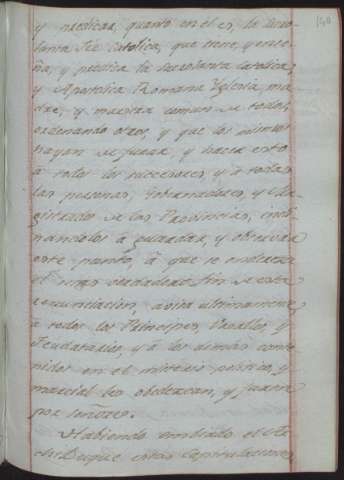 y predicar, quanto en el es, la Sacro-
santa Fee Catolica, que tiene, y ense-
ña, y predica la Sacrosanta Catolica,
y Apostolica Romana Yglesia, ma-
dre, y maestra comun de todos,
ordenando otro, y que los mismos
hayan de jurar, y hacer esto
à todos los successores, y à todas
las personas, Governadores, y Ma-
gistrados de las Provincias, incli-
nandolos à guardar, y observar
este punto, à que se endereza
el mas verdadero fin de esta
renunciacion, avisa ultimamente
à todos los Principes, Vasallos, y
Feudatarios, y à los demàs conte-
nidos en el politico, y
marcial les obedezcan, y juren
por Señores.
Habiendo embiado el Ar-
chiDuque estas Capitulaciones